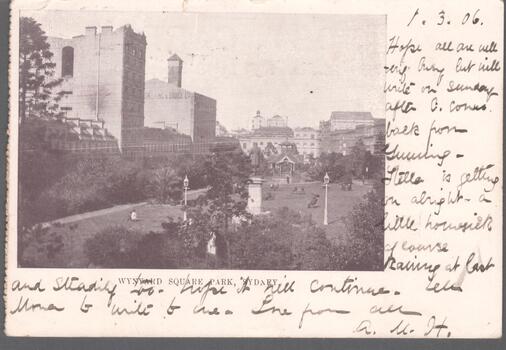 1. 3. 06.
Hope all are well
very busy but will
write on Sunday
after A. comes
back from
Gunning -
Stella is getting
on alright - a
little homesick
of course
Raining at last
WYNYARD SQUARE PARK, SYDNEY.
and steadily too. Hope it will continue. Tell
Mona to write to me. Love from all
A. M. H.